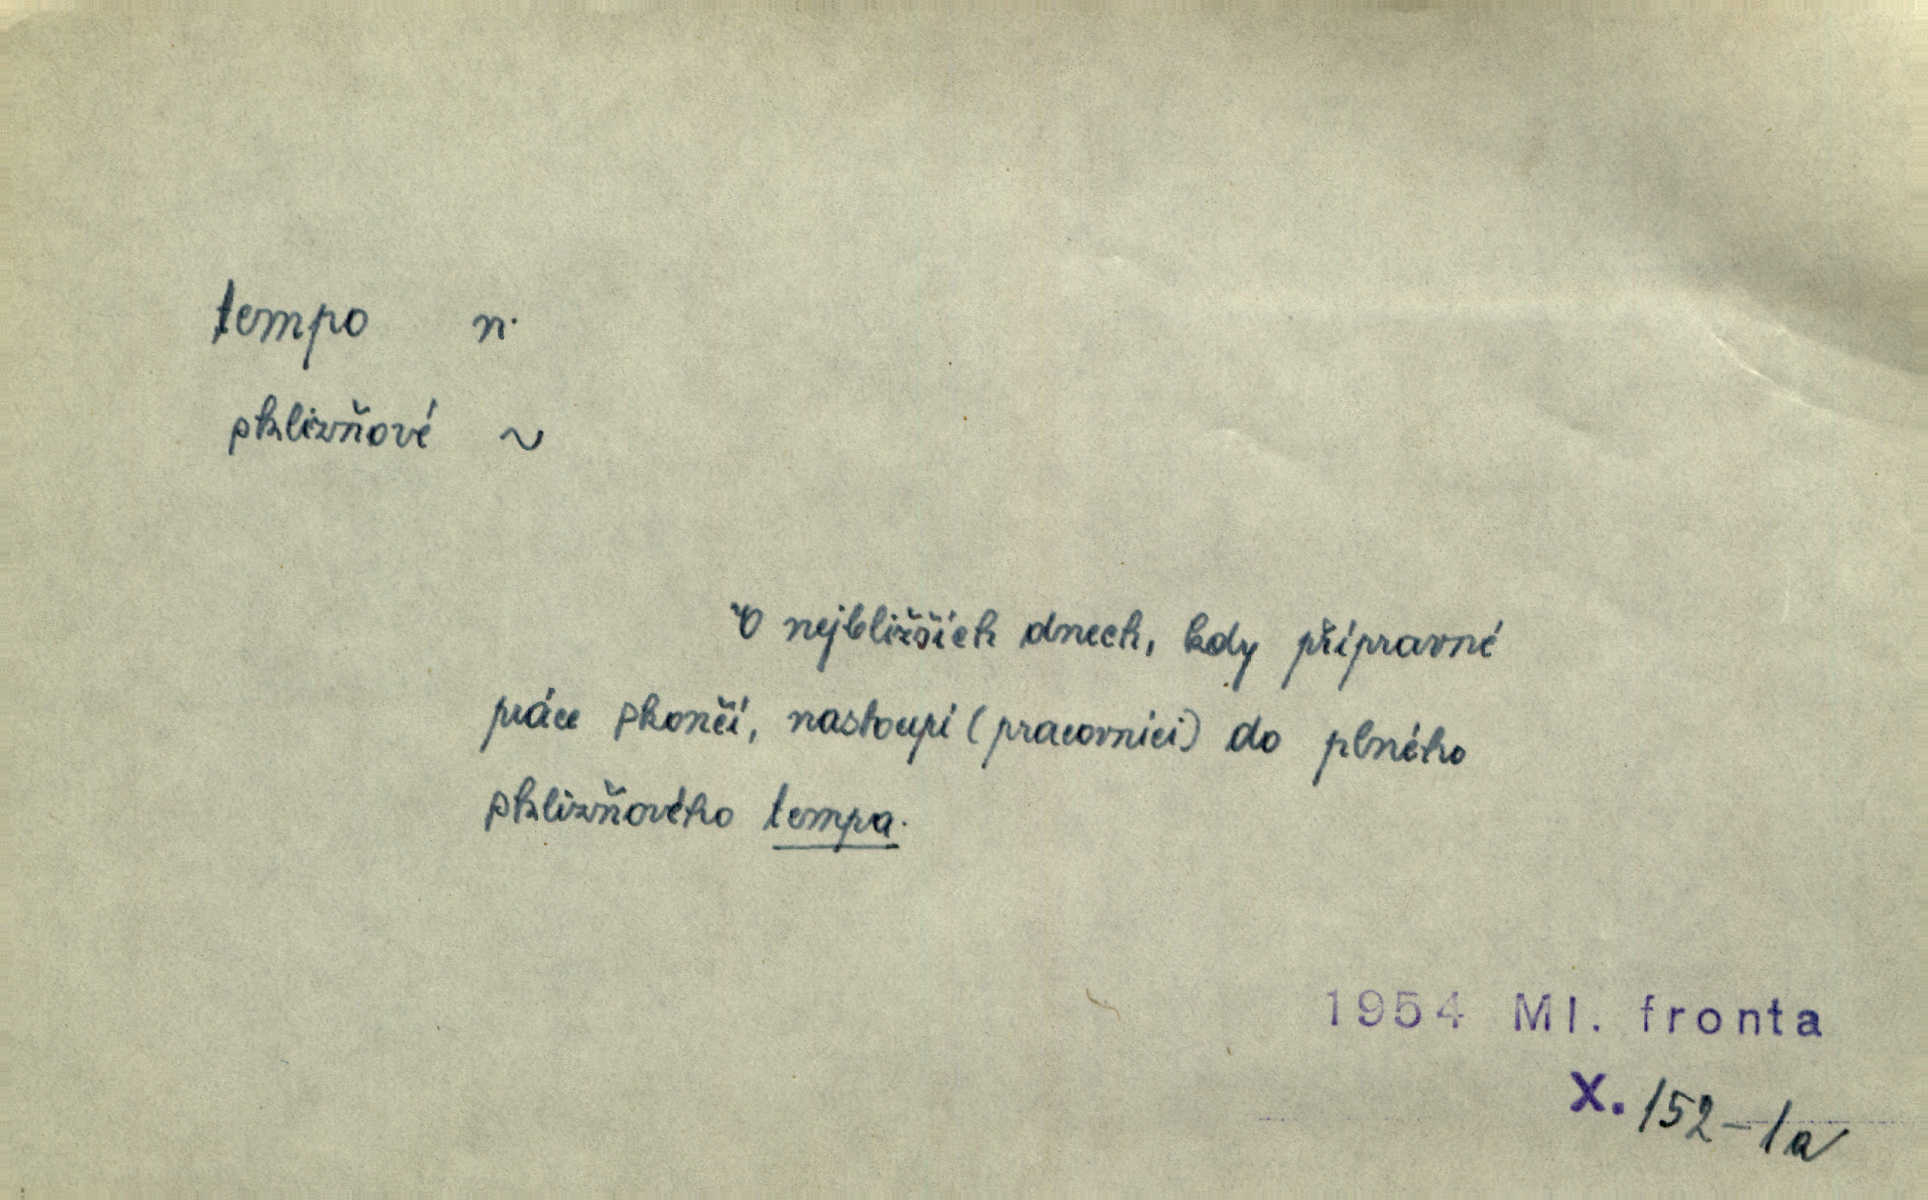 tempo n.
sklizňové ~
V nejbližších dnech, kdy přípravné
práce skončí, nastoupí (pracovníci) do plného
sklizňového tempa.
1954 Ml. fronta
X. 152-1a